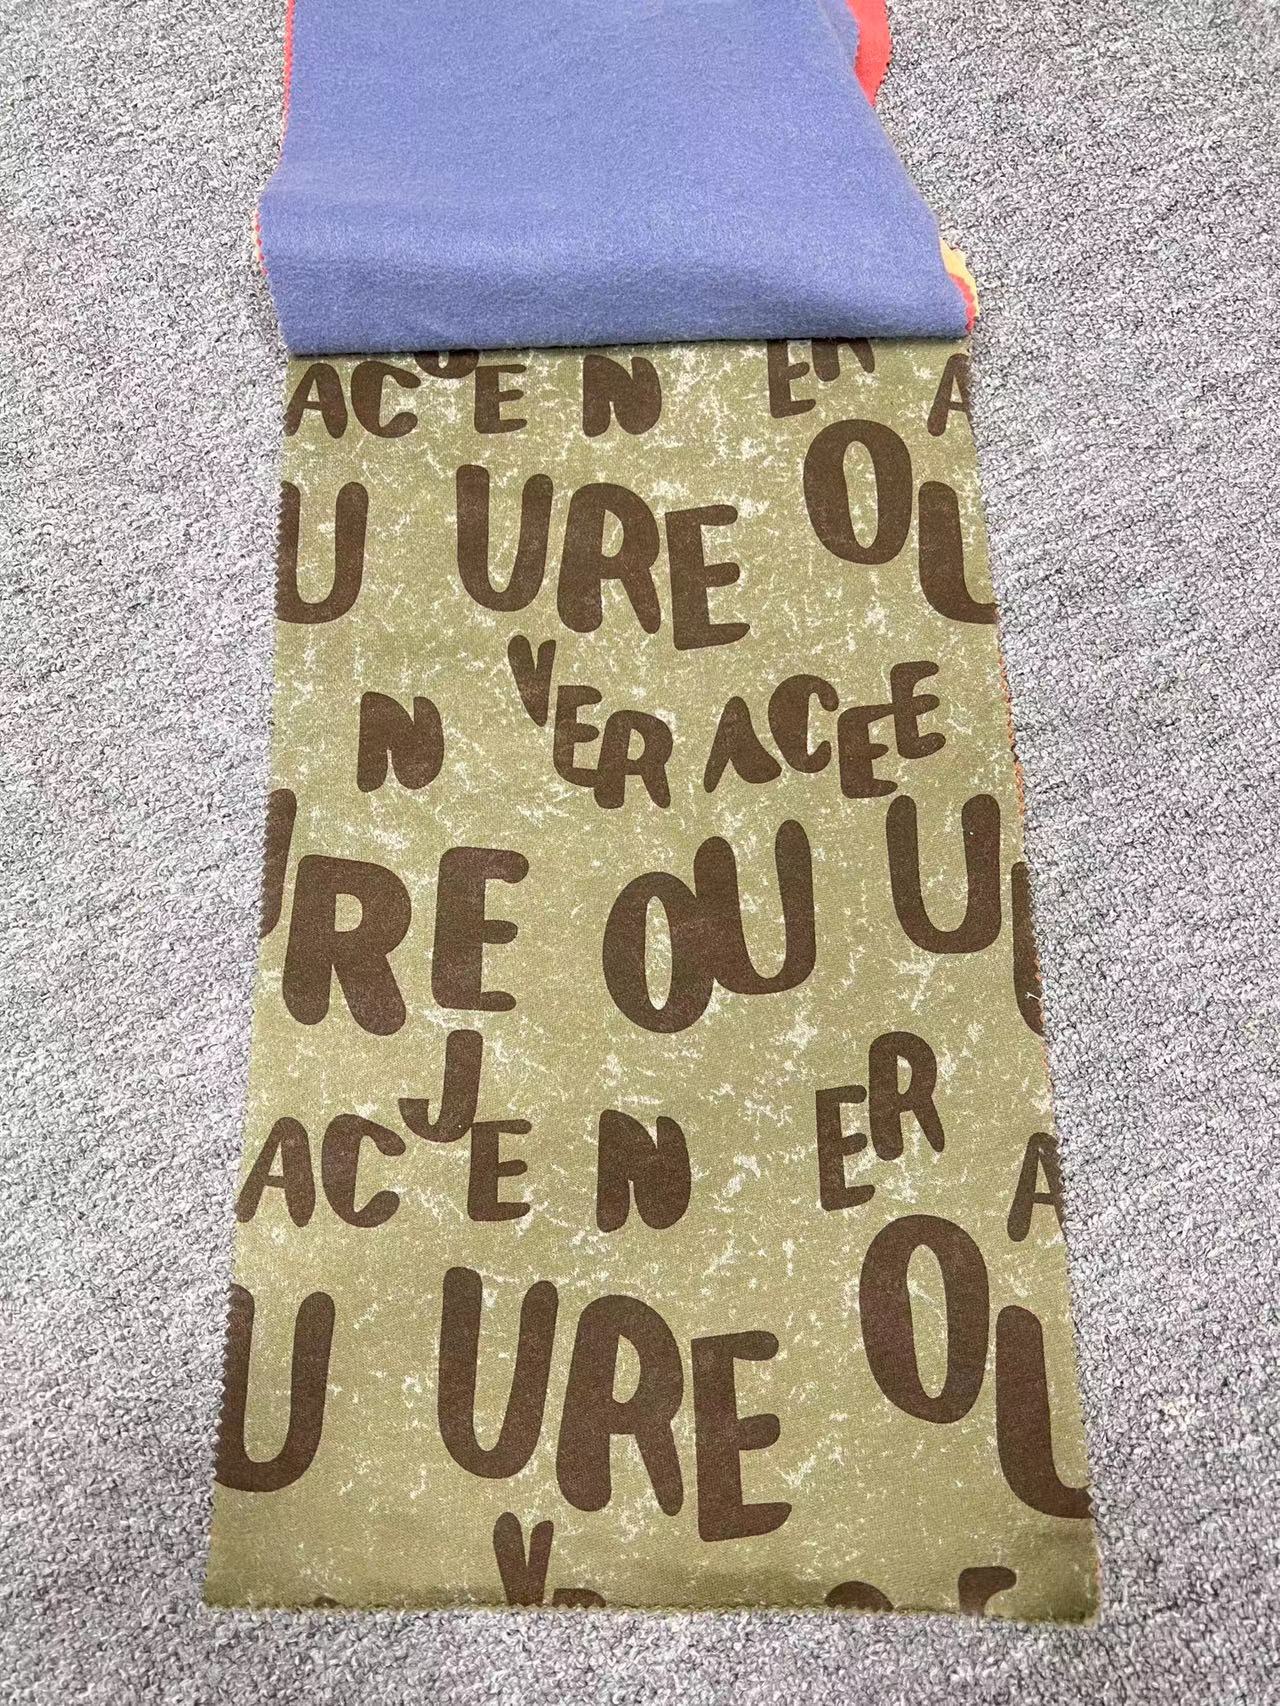 ACJEN ER A
U URE O U
N VER ACEE
URE OU U
ACJEN ER A
U URE O U
V